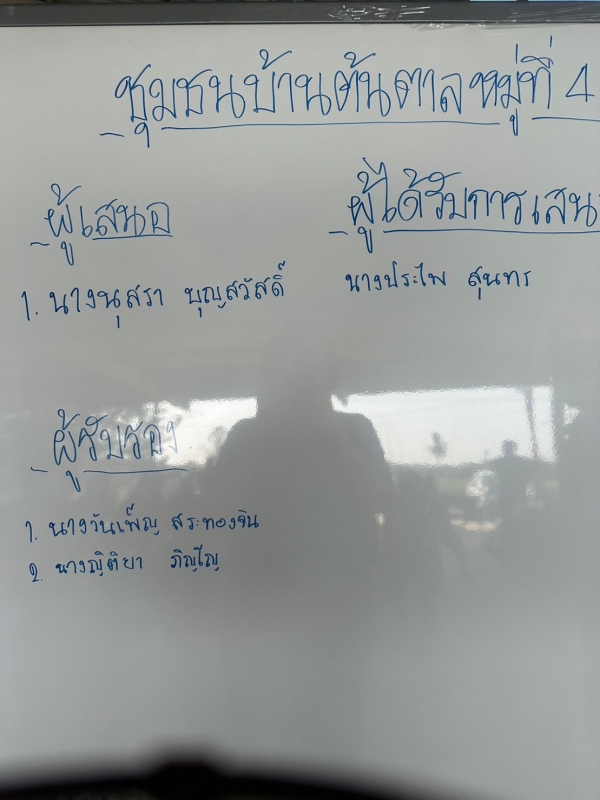 ชุมชนบ้านต้นตาลหมู่ที่ 4
ผู้เสนอ ผู้ได้รับการเสน
1. นางนุสรา บุญสวัสดิ์ นางประไพ สุนทร
ผู้รับรอง
1. นางวันเพ็ญ สระทองจิน
2. นางญิติยา ภิญโญ